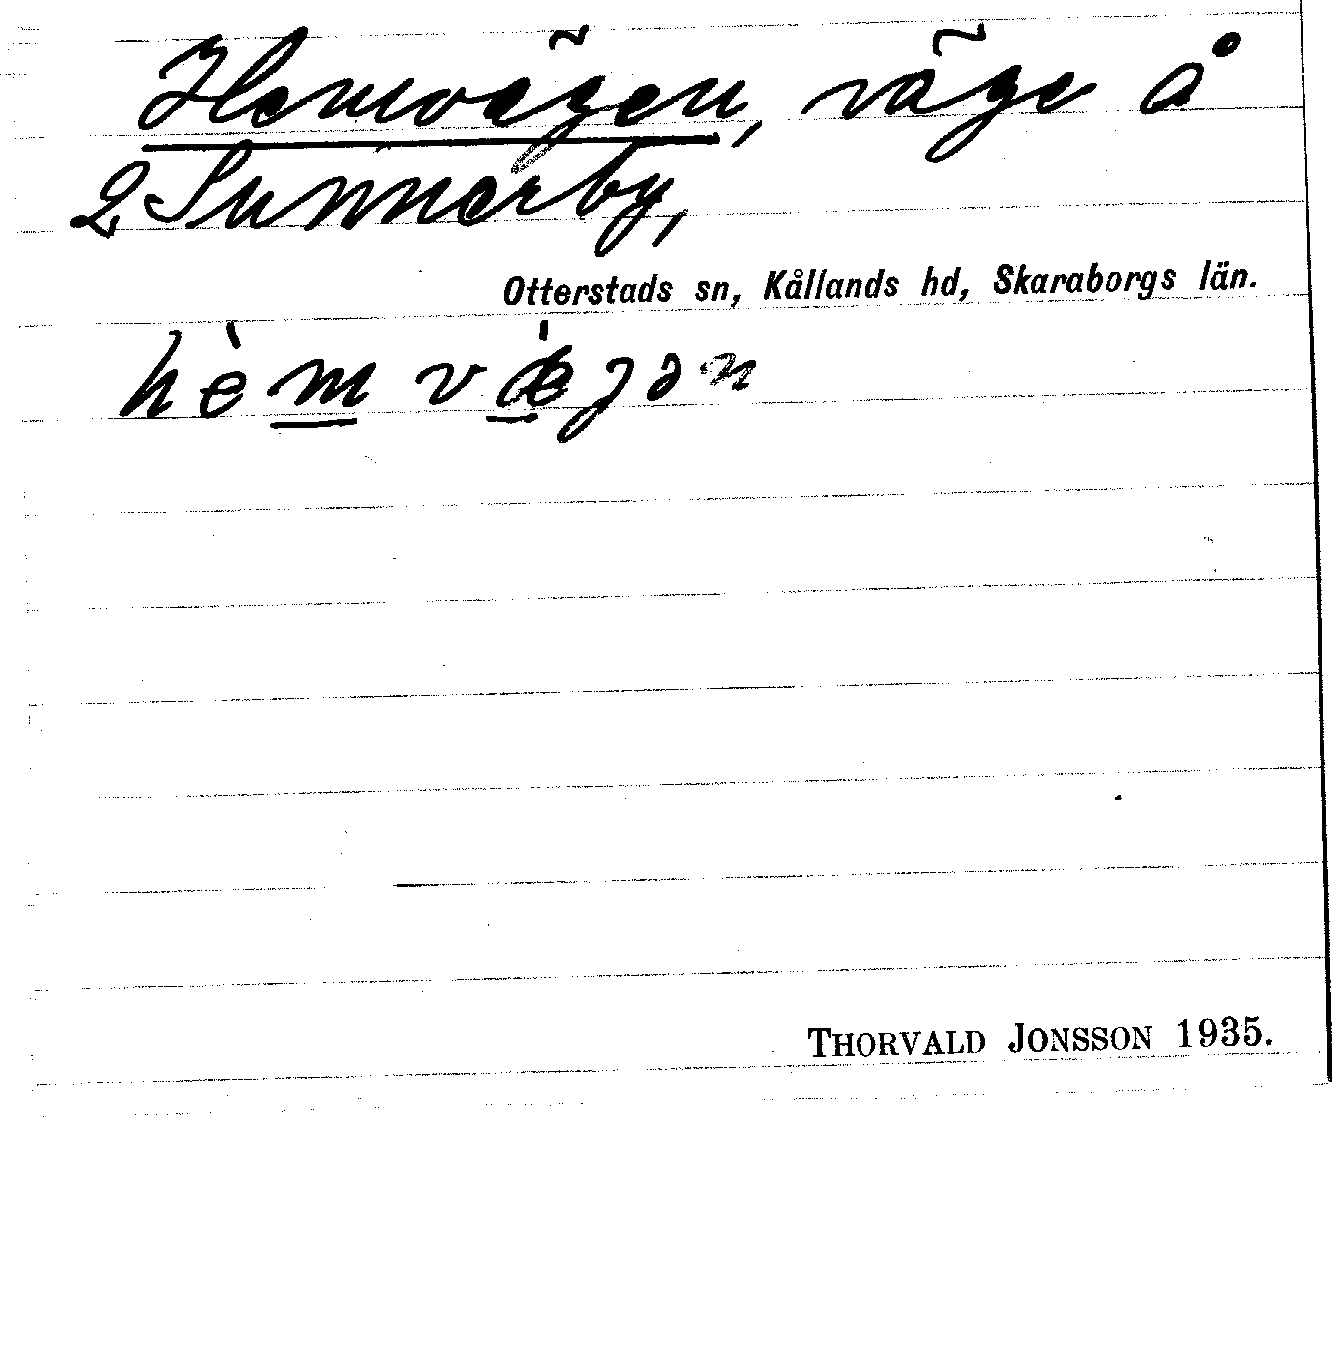 Hemvägen, väge å
2 Sunnerby,
Otterstads sn, Kållands hd, Skaraborgs län.
hèmvæ̀jən
THORVALD JONSSON 1935.